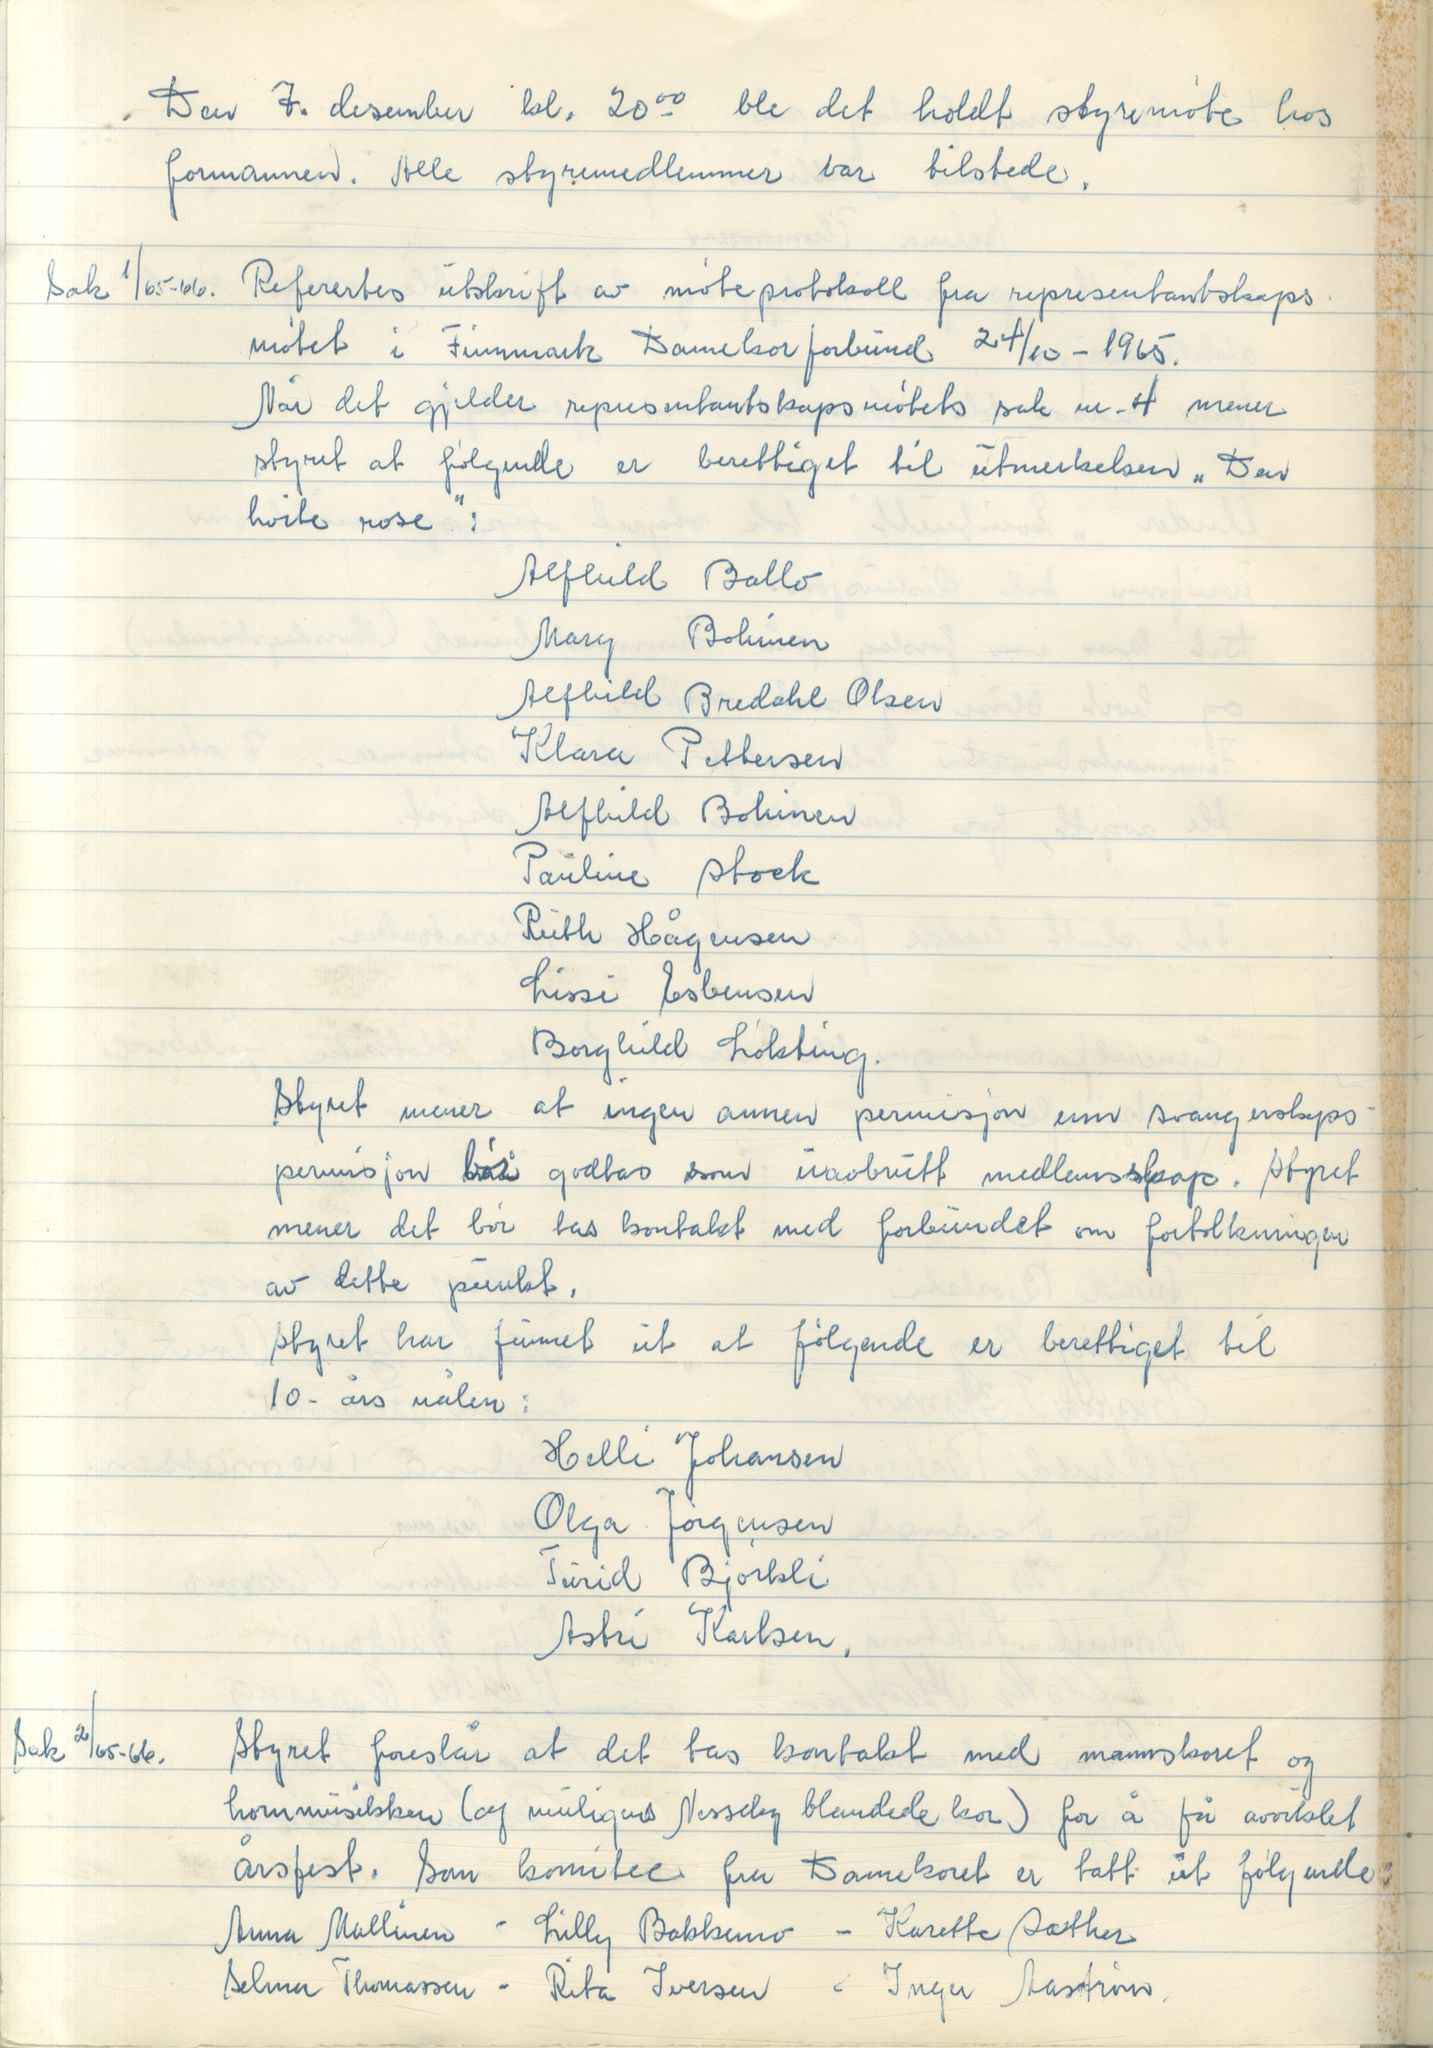 Den 7. desember kl. 20⁰⁰ ble det holdt styremøte hos
formannen. Alle styremedlemmer var tilstede.
Sak 1/65-66. Referertes utskrift av møteprotokoll fra representantskaps-
møtet i Finnmark Damekorforbund 24/10 - 1965.
Når det gjelder representantskapsmøtets sak nr. 4 mener
styret at følgende er berettiget til utmerkelsen „Den
hvite rose":
Alfhild Ballo
Mary Bohinen
Alfhild Bredahl Olsen
Klara Pettersen
Alfhild Bohinen
Pauline Stock
Ruth Hågensen
Lissi Esbensen
Borghild Løkting.
Styret mener at ingen annen permisjon enn svangerskaps-
permisjon bør godtas som uavbrutt medlemsskap. Styret
mener det bør tas kontakt med forbundet om fortolkningen
av dette punkt.
Styret har funnet ut at følgende er berettiget til
10-års nålen:
Helli Johansen
Olga Jørgensen
Turid Bjørkli
Astri Karlsen.
Sak 2/65-66. Styret foreslår at det tas kontakt med mannskoret og
hornmusikken (og muligens Nesseby blandede kor) for å få avviklet
årsfest. Som komitee fra Damekoret er tatt ut følgende:
Anna Mallinen - Lilly Bakkemo - Karette Sæther
Selma Thomassen - Rita Iversen - Inger Aastrøm.